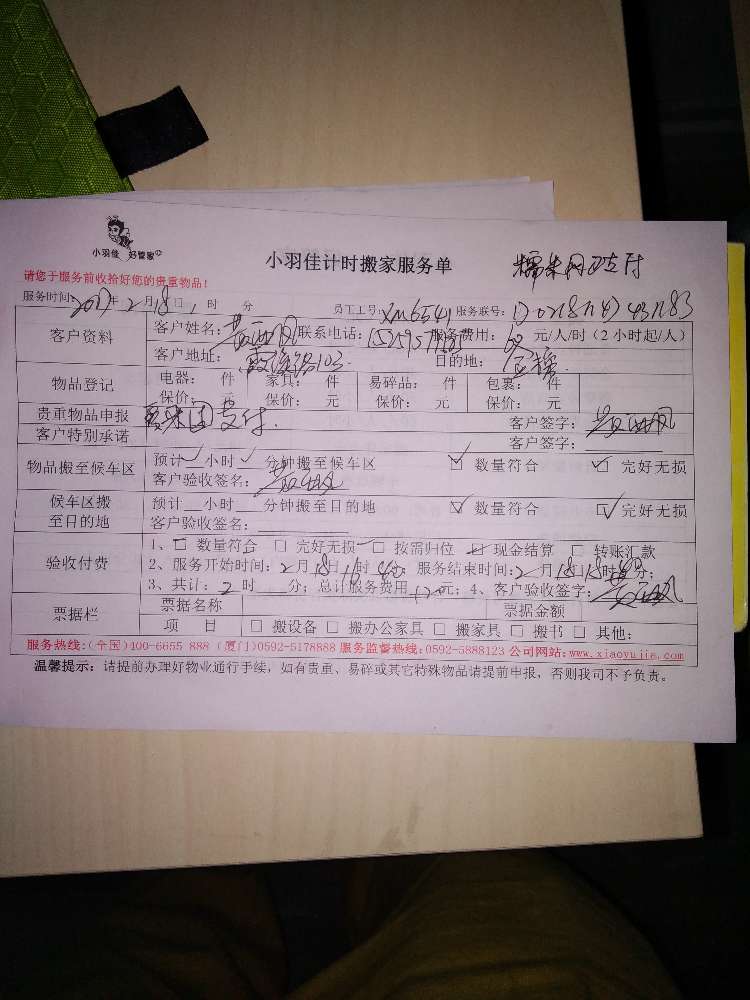 小羽佳 好管家
小羽佳计时搬家服务单 糯米网已支付
请您于服务前收拾好您的贵重物品!
服务时间: 2017年 2月 18日 1时 分 员工工号: Xm6541 服务联号:
客户资料 客户姓名: 联系电话: 服务费用: 60 元/人/时(2小时起/人)
客户地址: 103 目的地:
物品登记 电器: 件 家具: 件 易碎品: 件 包裹: 件
保价: 元 保价: 元 保价: 元 保价: 元
贵重物品申报 支付. 客户签字:
客户特别承诺 客户签字:
物品搬至候车区 预计 小时 分钟搬至候车区 数量符合 完好无损
客户验收签名:
候车区搬至目的地 预计__小时__分钟搬至目的地 数量符合 完好无损
客户验收签名:
验收付费 1、□ 数量符合 □ 完好无损 □ 按需归位 □ 现金结算 □ 转账汇款
2、服务开始时间: 2月18日 时 分; 服务结束时间: 2月18日 时 分;
3、共计: 2 时 分; 总计服务费用 120元; 4、客户验收签字:
票据栏 票据名称 票据金额
项 目 □ 搬设备 □ 搬办公家具 □ 搬家具 □ 搬书 □ 其他:
服务热线:(全国)400-6655 888 (厦门)0592-5178888 服务监督热线:0592-5888123 公司网站:www.xiaoyujia.com
温馨提示: 请提前办理好物业通行手续, 如有贵重、易碎或其它特殊物品请提前申报, 否则我司不予负责。